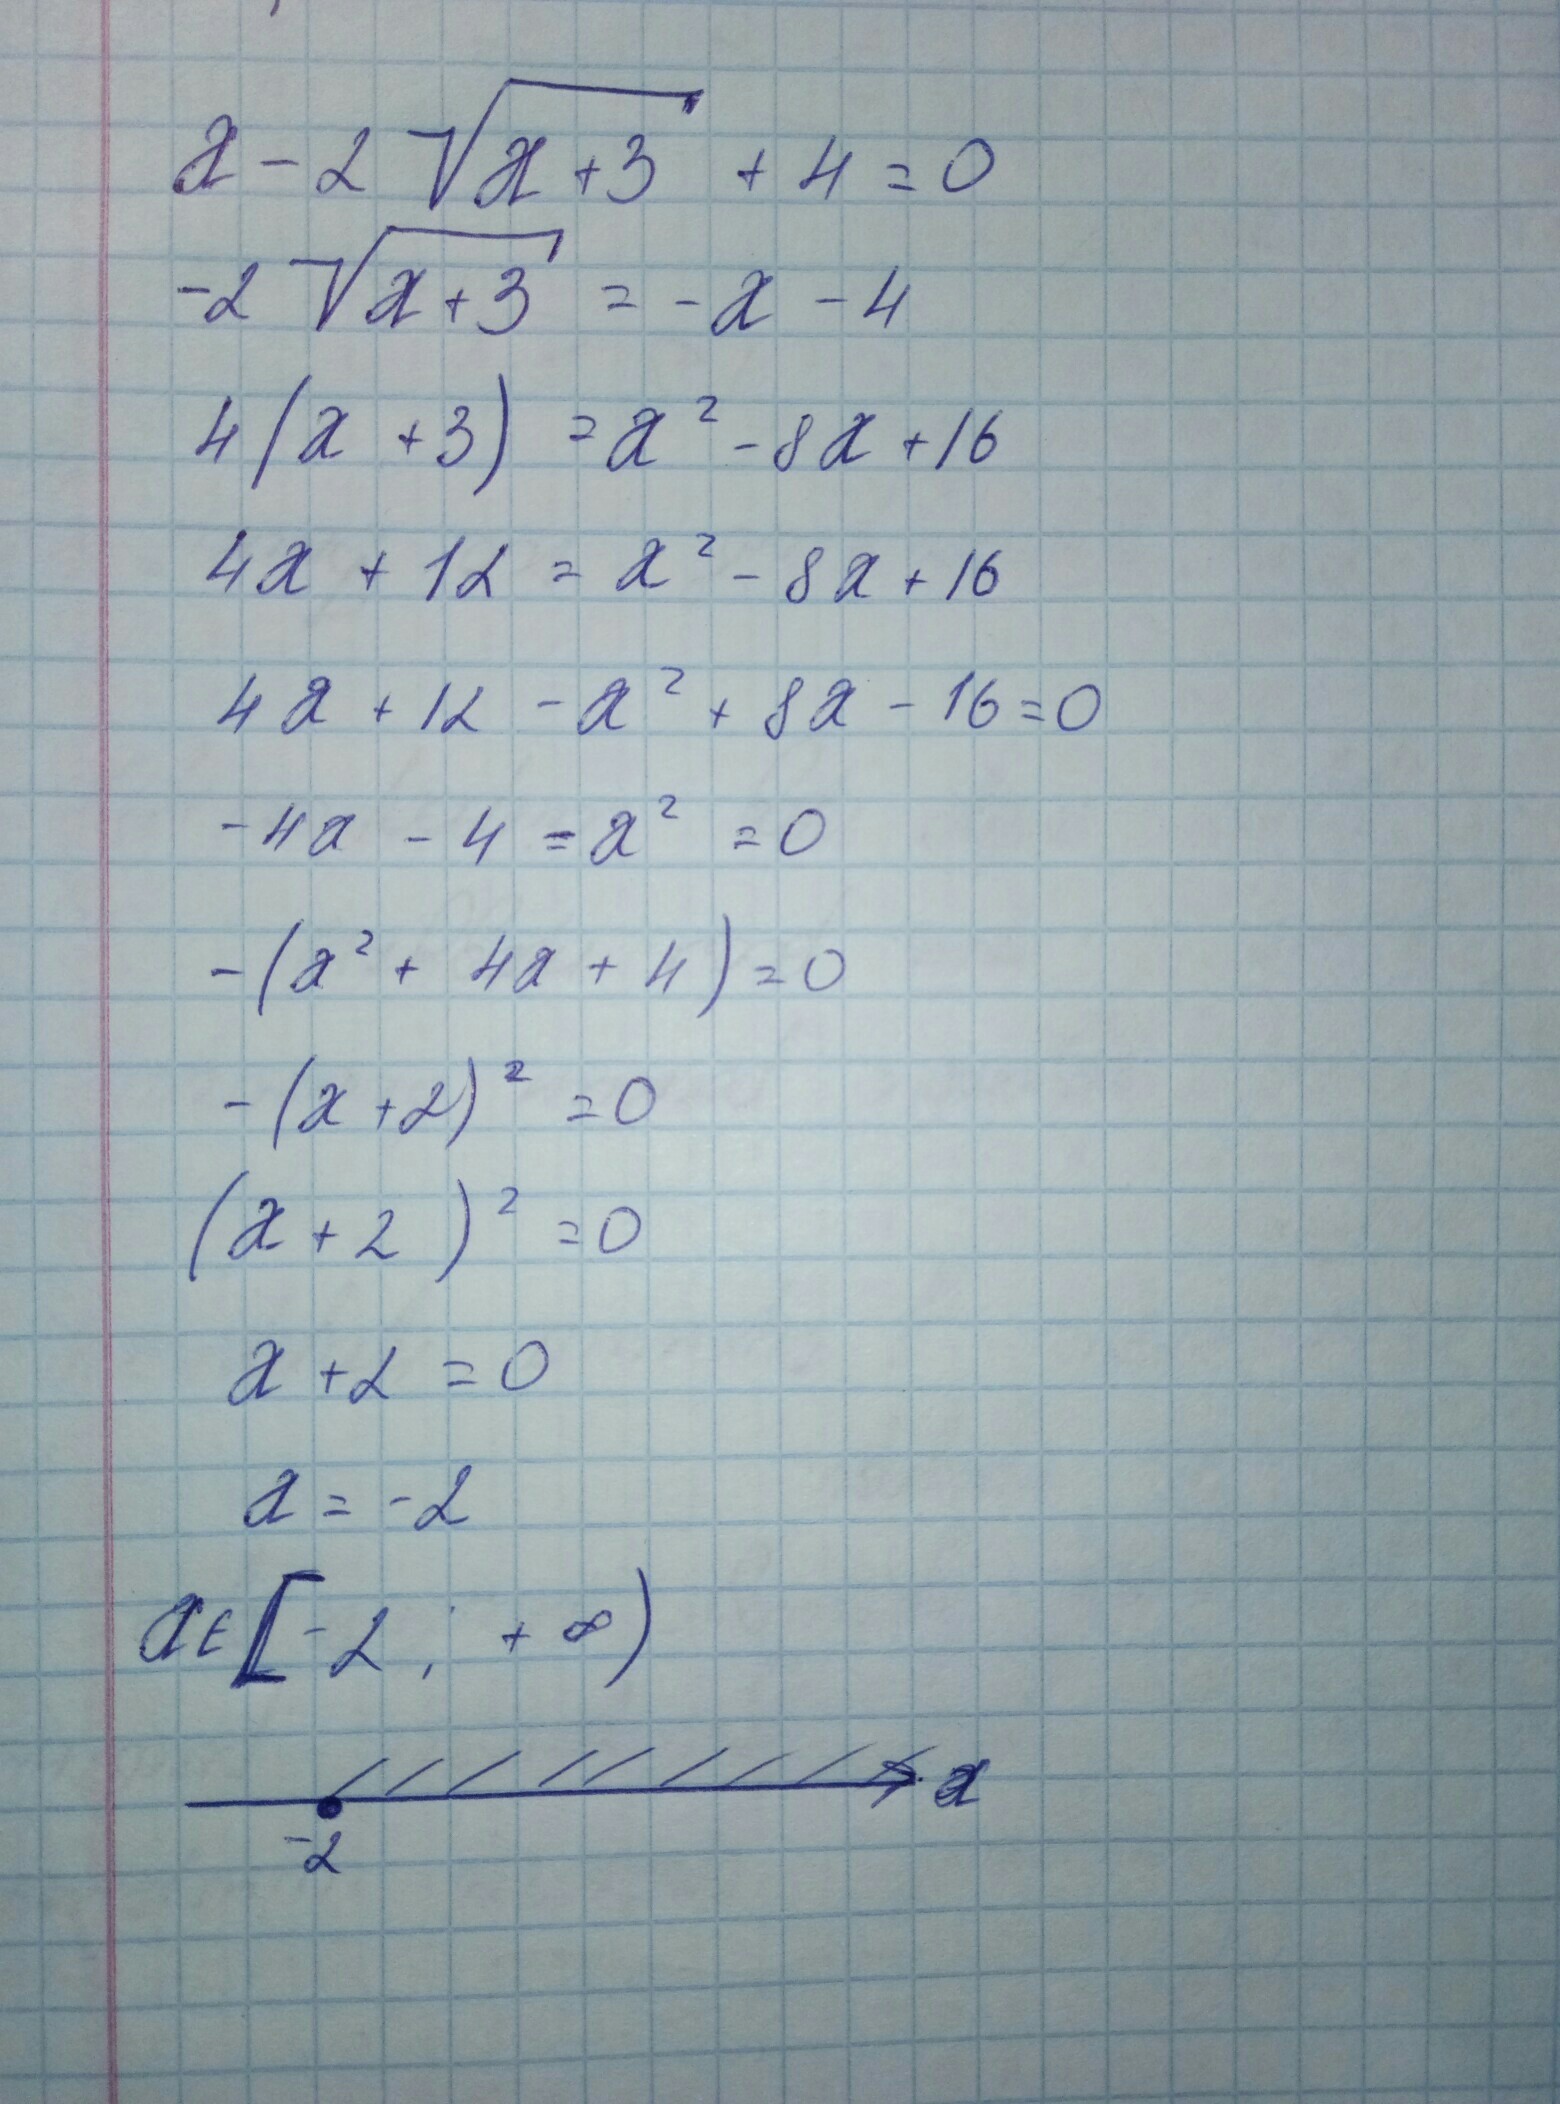 x - 2 √(x + 3) + 4 = 0
-2 √(x + 3) = - x - 4
4 (x + 3) = x² - 8x + 16
4x + 12 = x² - 8x + 16
4x + 12 - x² + 8x - 16 = 0
- 4x - 4 - x² = 0
- (x² + 4x + 4) = 0
- (x + 2)² = 0
(x + 2)² = 0
x + 2 = 0
x = - 2
x ∈ [-2 ; + ∞)
x
-2